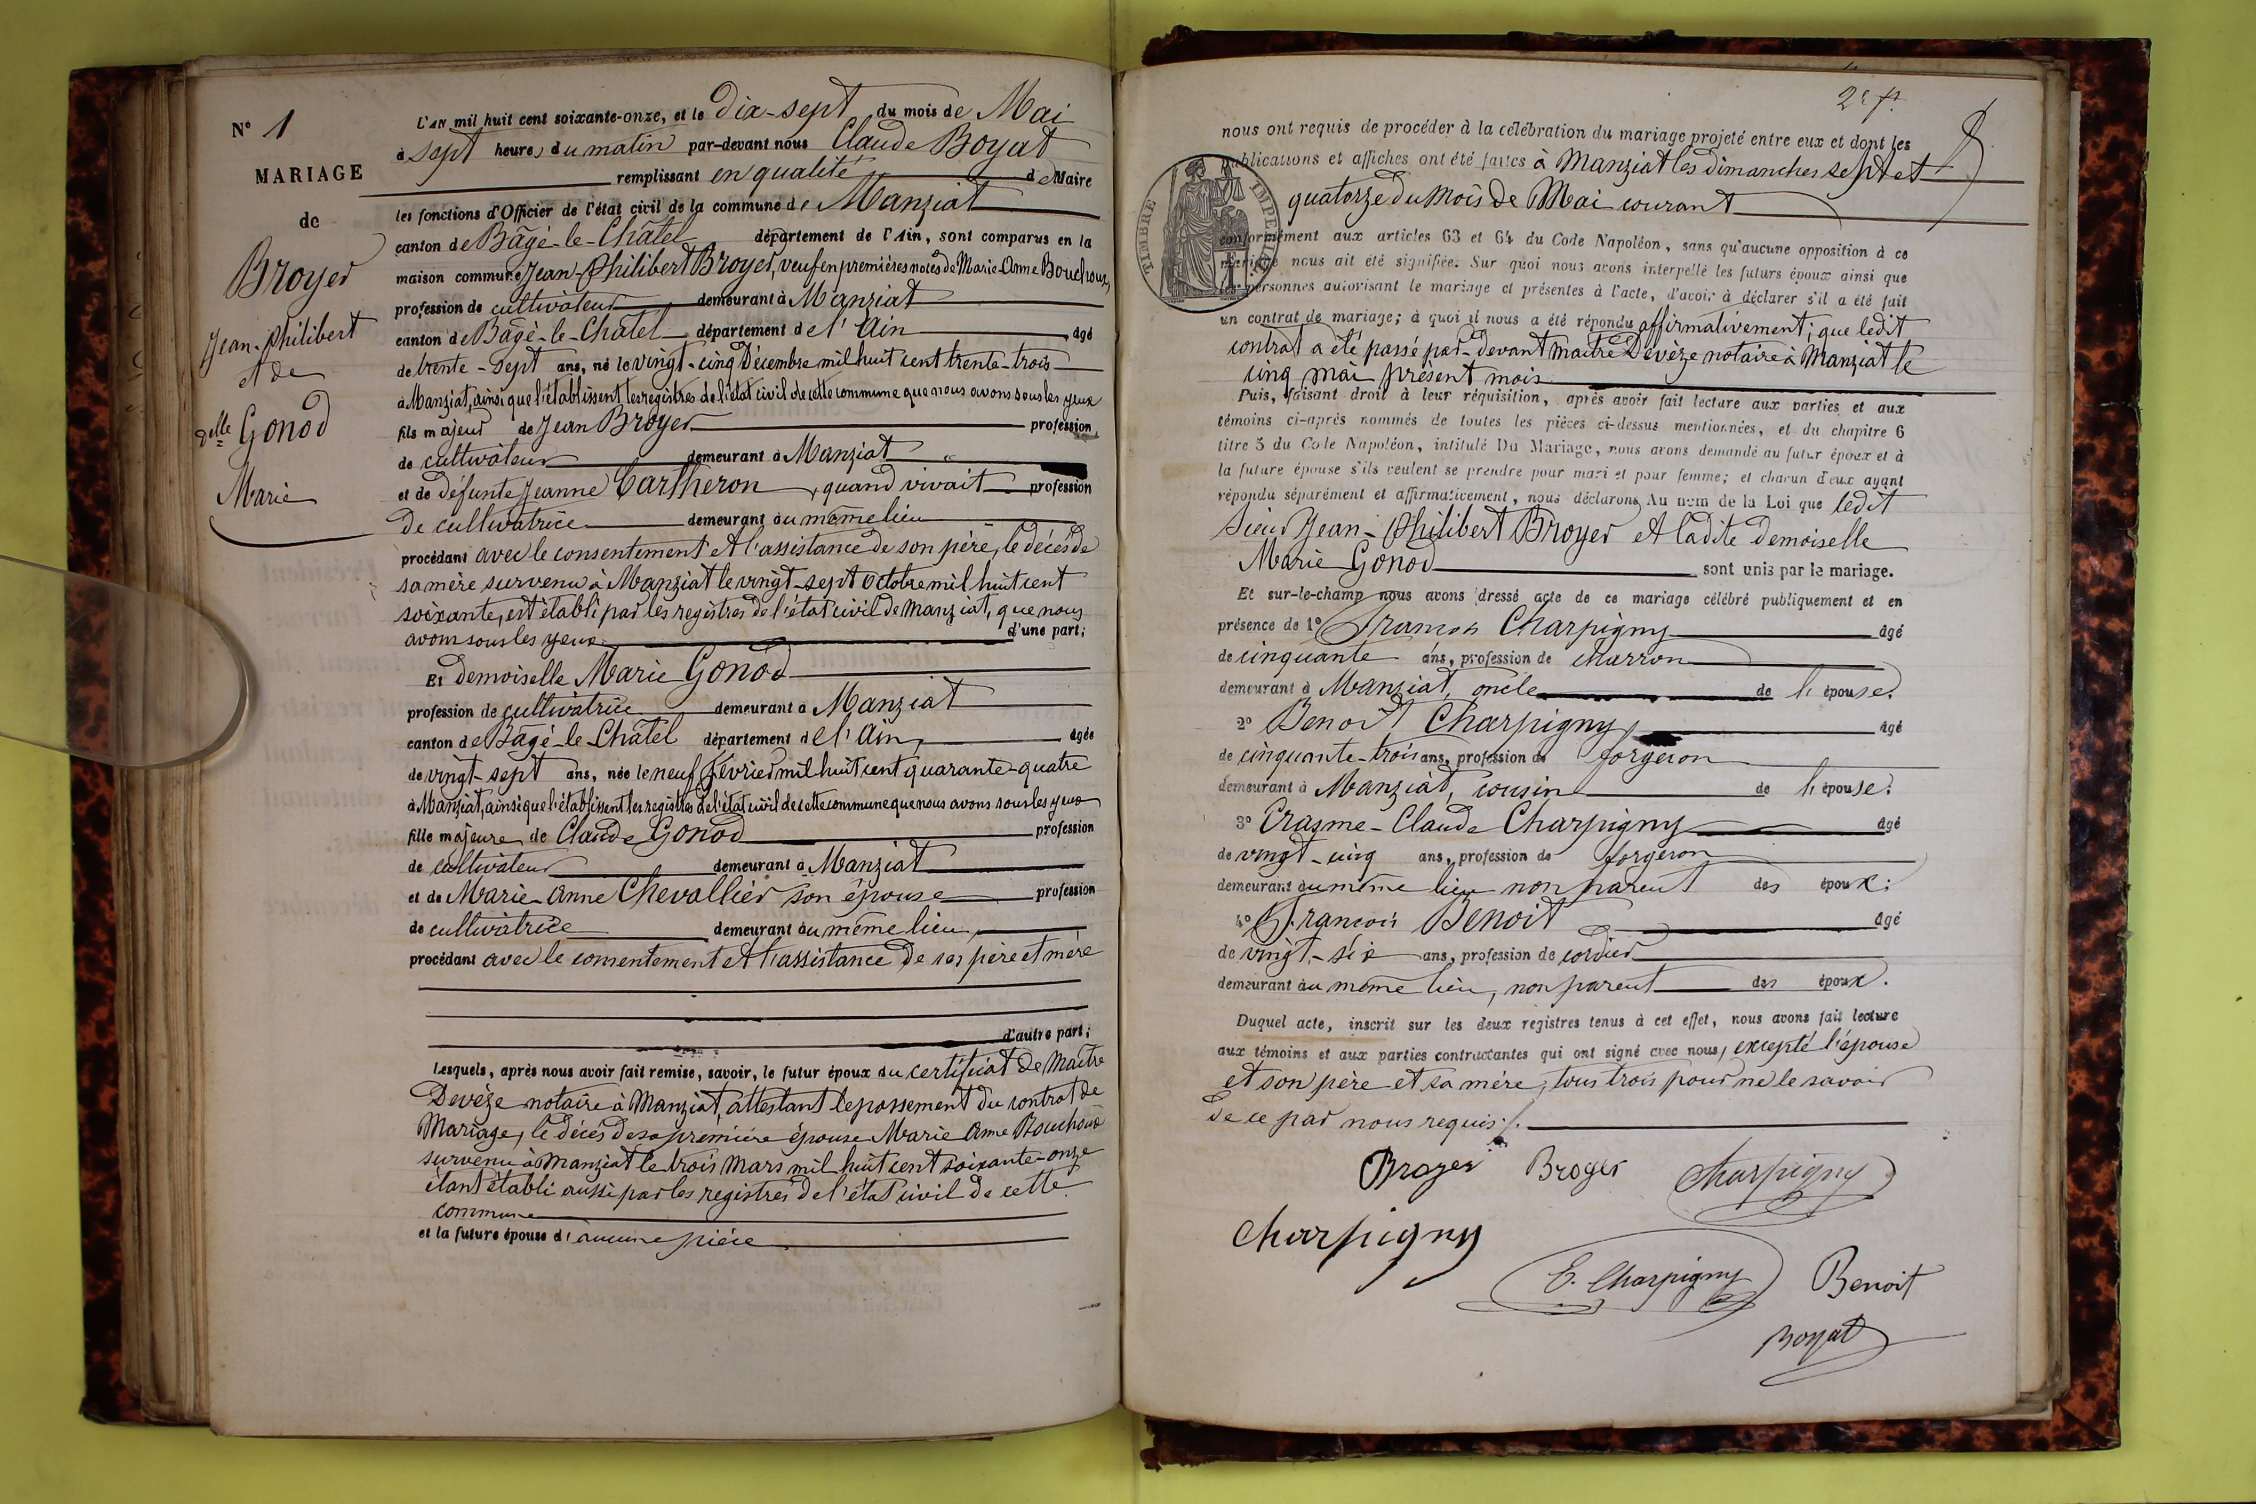 N° 1
MARIAGE
de
Broyer
Jean-Philibert
et de
delle Gonod
Marie
L'AN mil huit cent soixante-onze, et le dix-sept du mois de Mai
à sept heures du matin par-devant nous Claude Boyat
remplissant en qualité de Maire
les fonctions d'Officier de l'état civil de la commune de Manziat
canton de Bâgé-le-Châtel département de l'Ain, sont comparus en la
maison commune Jean-Philibert Broyer, veuf en premières noces de Marie-Anne Bouchoux,
profession de cultivateur demeurant à Manziat
canton de Bâgé-le-Châtel département de l'Ain âgé
de trente-sept ans, né le vingt-cinq Décembre mil huit cent trente-trois
à Manziat, ainsi que l'établissent les registres de l'état civil de cette commune que nous avons sous les yeux
fils majeur de Jean Broyer profession
de cultivateur demeurant à Manziat
et de défunte Jeanne Cartheron, quand vivait profession
de cultivatrice demeurant au même lieu
procédant avec le consentement et l'assistance de son père, le décès de
sa mère survenu à Manziat le vingt-sept Octobre mil huit cent
soixante, est établi par les registres de l'état civil de Manziat, que nous
avons sous les yeux d'une part;
Et demoiselle Marie Gonod
profession de cultivatrice demeurant à Manziat
canton de Bâgé-le-Châtel département de l'Ain, âgée
de vingt-sept ans, née le neuf Février mil huit cent quarante-quatre
à Manziat, ainsi que l'établissent les registres de l'état civil de cette commune que nous avons sous les yeux
fille majeure de Claude Gonod profession
de cultivateur demeurant à Manziat
et de Marie-Anne Chevallier son épouse profession
de cultivatrice demeurant au même lieu,
procédant avec le consentement et l'assistance de ses père et mère
d'autre part;
Lesquels, après nous avoir fait remise, savoir, le futur époux du certificat de Maître
Devèze notaire à Manziat, attestant le passement du contrat de
Mariage, le décès de sa première épouse Marie Anne Bouchoux
survenu à Manziat le trois Mars mil huit cent soixante-onze
étant établi aussi par les registres de l'état civil de cette
commune
et la future épouse d'aucune pièce
2e ft.
nous ont requis de procéder à la célébration du mariage projeté entre eux et dont les
publications et affiches ont été faites à Manziat les dimanches sept et
quatorze du Mois de Mai courant
TIMBRE IMPERIAL
conformément aux articles 63 et 64 du Code Napoléon, sans qu'aucune opposition à ce
mariage nous ait été signifiée. Sur quoi nous avons interpellé les futurs époux ainsi que
les personnes autorisant le mariage et présentes à l'acte, d'avoir à déclarer s'il a été fait
un contrat de mariage; à quoi il nous a été répondu affirmativement; que ledit
contrat a été passé par-devant maître Devèze notaire à Manziat le
cinq mai présent mois
Puis, faisant droit à leur réquisition, après avoir fait lecture aux parties et aux
témoins ci-après nommés de toutes les pièces ci-dessus mentionnées, et du chapitre 6
titre 5 du Code Napoléon, intitulé Du Mariage, nous avons demandé au futur époux et à
la future épouse s'ils veulent se prendre pour mari et pour femme; et chacun d'eux ayant
répondu séparément et affirmativement, nous déclarons, Au nom de la Loi que ledit
Sieur Jean-Philibert Broyer et ladite demoiselle
Marie Gonod sont unis par le mariage.
Et sur-le-champ nous avons dressé acte de ce mariage célébré publiquement et en
présence de 1° François Charpigny âgé
de cinquante ans, profession de charron
demeurant à Manziat, oncle de l'épouse.
2° Benoît Charpigny, âgé
de cinquante-trois ans, profession de forgeron
demeurant à Manziat, cousin de l'épouse.
3° Erasme-Claude Charpigny âgé
de vingt-cinq ans, profession de forgeron
demeurant au même lieu non parent des époux;
4° François Benoit âgé
de vingt-six ans, profession de cordier
demeurant au même lieu, non parent des époux.
Duquel acte, inscrit sur les deux registres tenus à cet effet, nous avons fait lecture
aux témoins et aux parties contractantes qui ont signé avec nous, excepté l'épouse
et son père et sa mère, tous trois pour ne le savoir
de ce par nous requis./.
Broyer Broyer Charpigny
Charpigny
E. Charpigny Benoit
Boyat